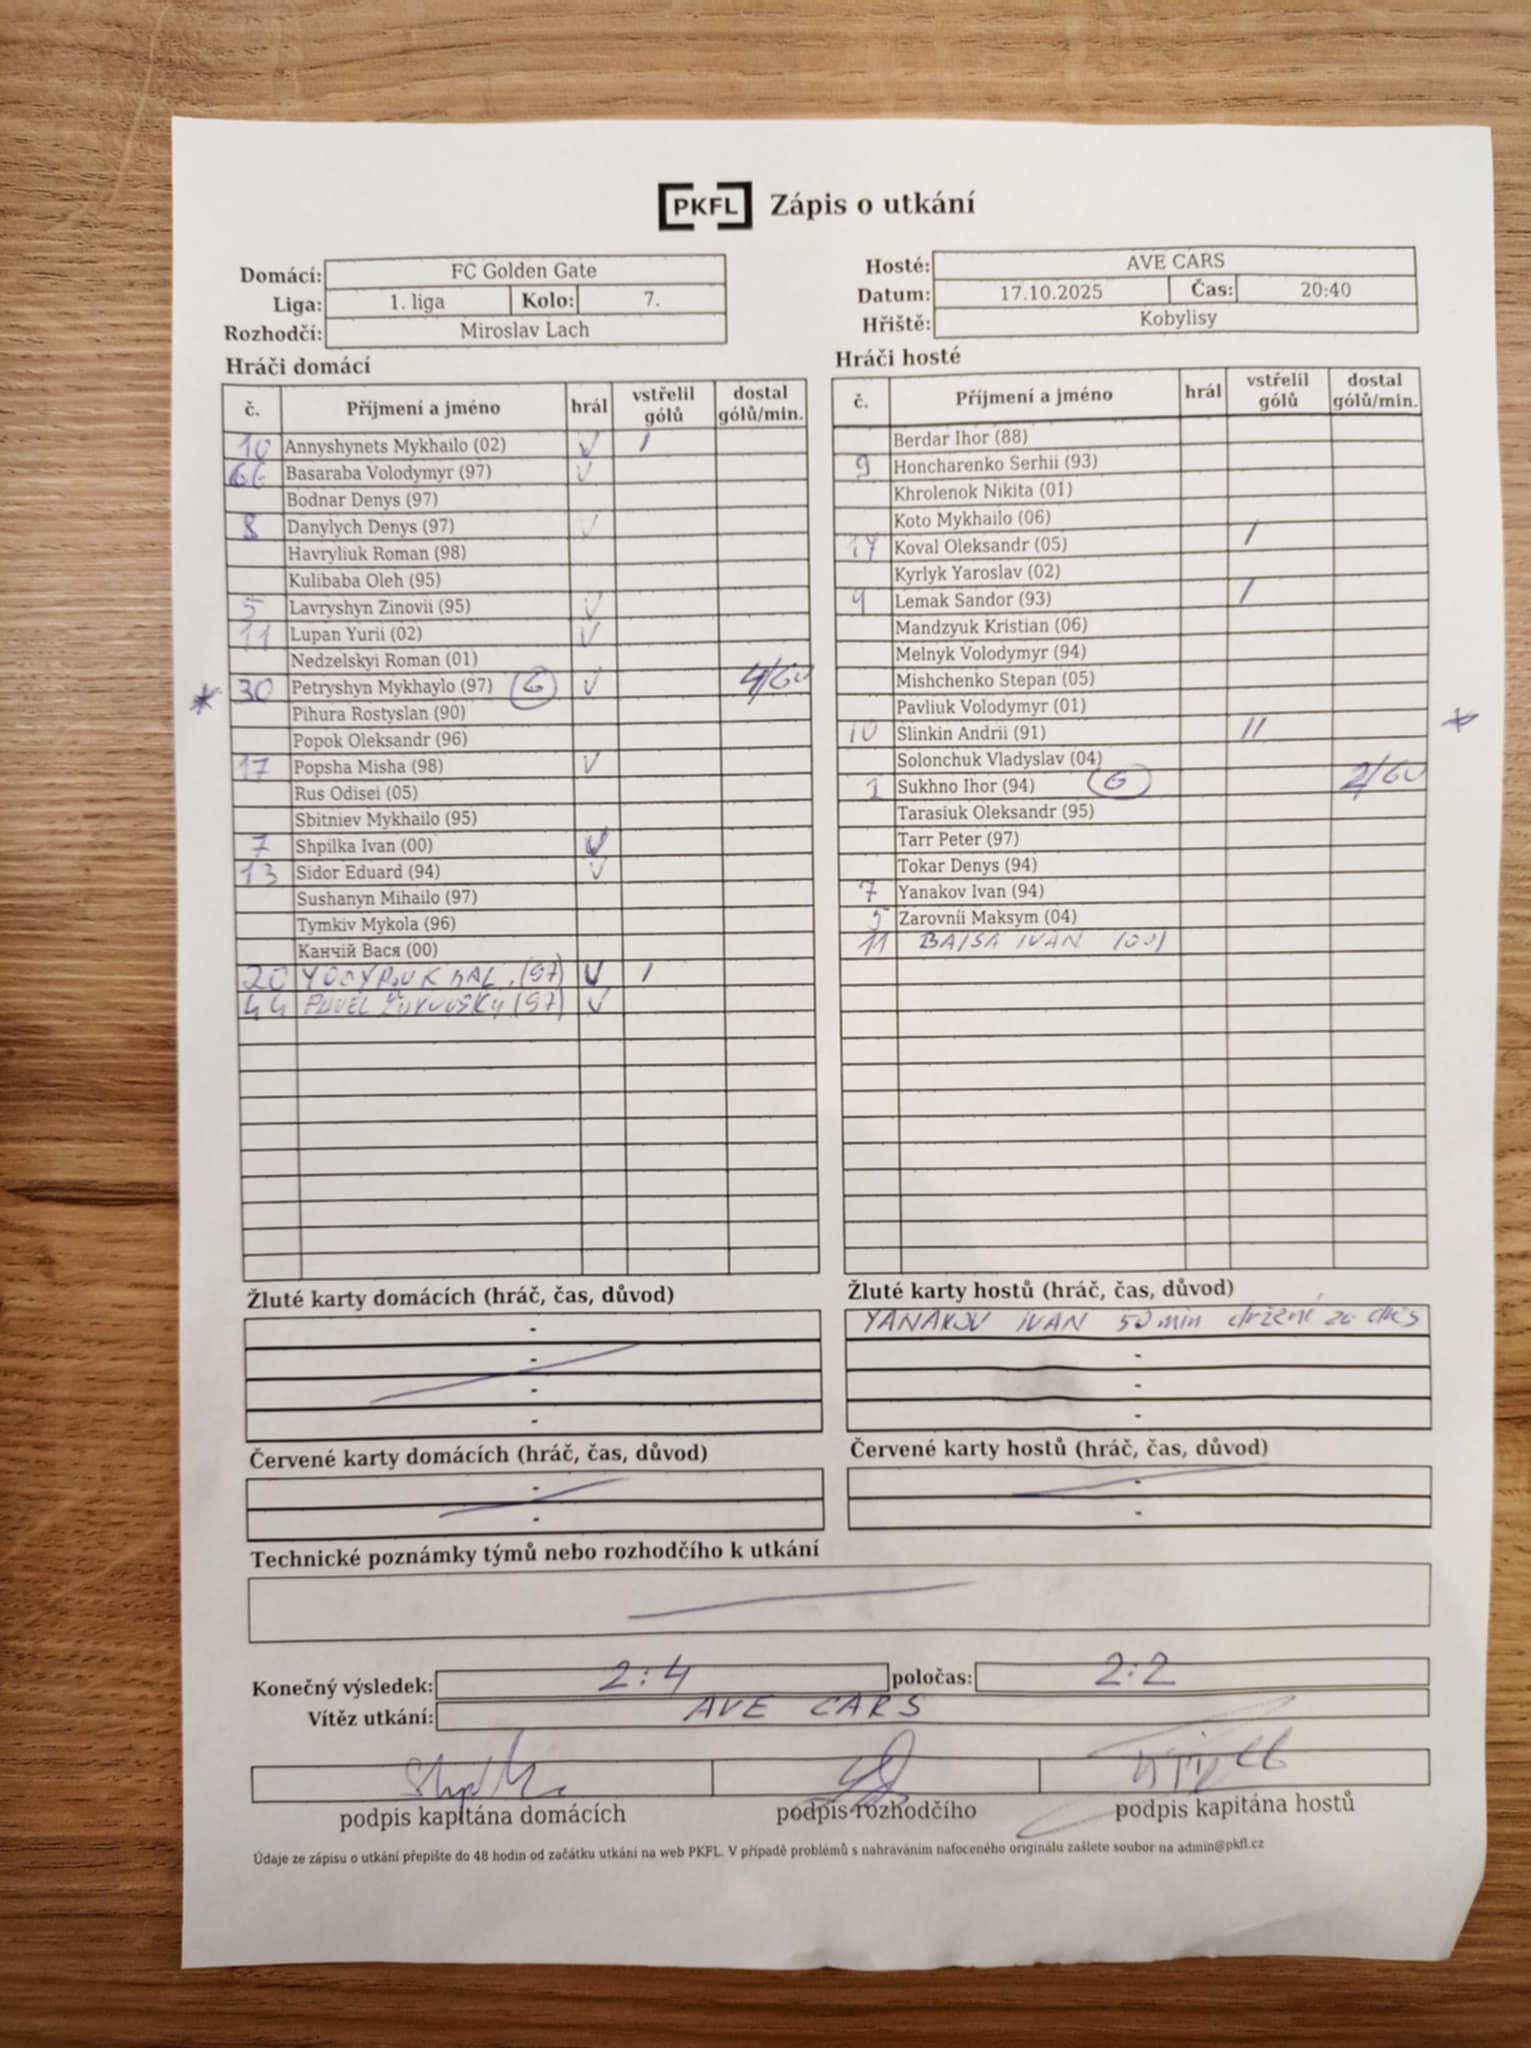 PKFL Zápis o utkání
Domácí: FC Golden Gate
Liga: 1. liga Kolo: 7.
Rozhodčí: Miroslav Lach
Hosté: AVE CARS
Datum: 17.10.2025 Čas: 20:40
Hřiště: Kobylisy
Hráči domácí
č. Příjmení a jméno hrál vstřelil gólů dostal gólů/min.
10 Annyshynets Mykhailo (02) V I
66 Basaraba Volodymyr (97) V
Bodnar Denys (97)
8 Danylych Denys (97) V
Havryliuk Roman (98)
Kulibaba Oleh (95)
5 Lavryshyn Zinovii (95) V
11 Lupan Yurii (02) V
Nedzelskyi Roman (01)
* 30 Petryshyn Mykhaylo (97) G V 4/60
Pihura Rostyslan (90)
Popok Oleksandr (96)
17 Popsha Misha (98) V
Rus Odisei (05)
Sbitniev Mykhailo (95)
7 Shpilka Ivan (00) V
13 Sidor Eduard (94) V
Sushanyn Mihailo (97)
Tymkiv Mykola (96)
Канчій Вася (00)
20 (97) V I
44 PAVEL (97) V
Hráči hosté
č. Příjmení a jméno hrál vstřelil gólů dostal gólů/min.
Berdar Ihor (88)
9 Honcharenko Serhii (93)
Khrolenok Nikita (01)
Koto Mykhailo (06)
Koval Oleksandr (05) I
Kyrlyk Yaroslav (02)
Lemak Sandor (93) I
Mandzyuk Kristian (06)
Melnyk Volodymyr (94)
Mishchenko Stepan (05)
Pavliuk Volodymyr (01)
10 Slinkin Andrii (91) II *
Solonchuk Vladyslav (04)
1 Sukhno Ihor (94) G 2/60
Tarasiuk Oleksandr (95)
Tarr Peter (97)
Tokar Denys (94)
7 Yanakov Ivan (94)
5 Zarovnii Maksym (04)
11 BAISA IVAN (00)
Žluté karty domácích (hráč, čas, důvod)
-
-
-
-
Žluté karty hostů (hráč, čas, důvod)
YANAKOV IVAN 50 min držení za dres
-
-
-
Červené karty domácích (hráč, čas, důvod)
-
-
Červené karty hostů (hráč, čas, důvod)
-
-
Technické poznámky týmů nebo rozhodčího k utkání
Konečný výsledek: 2:4 poločas: 2:2
Vítěz utkání: AVE CARS
podpis kapitána domácích podpis rozhodčího podpis kapitána hostů
Údaje ze zápisu o utkání přepište do 48 hodin od začátku utkání na web PKFL. V případě problémů s nahráváním nafoceného originálu zašlete soubor na admin@pkfl.cz